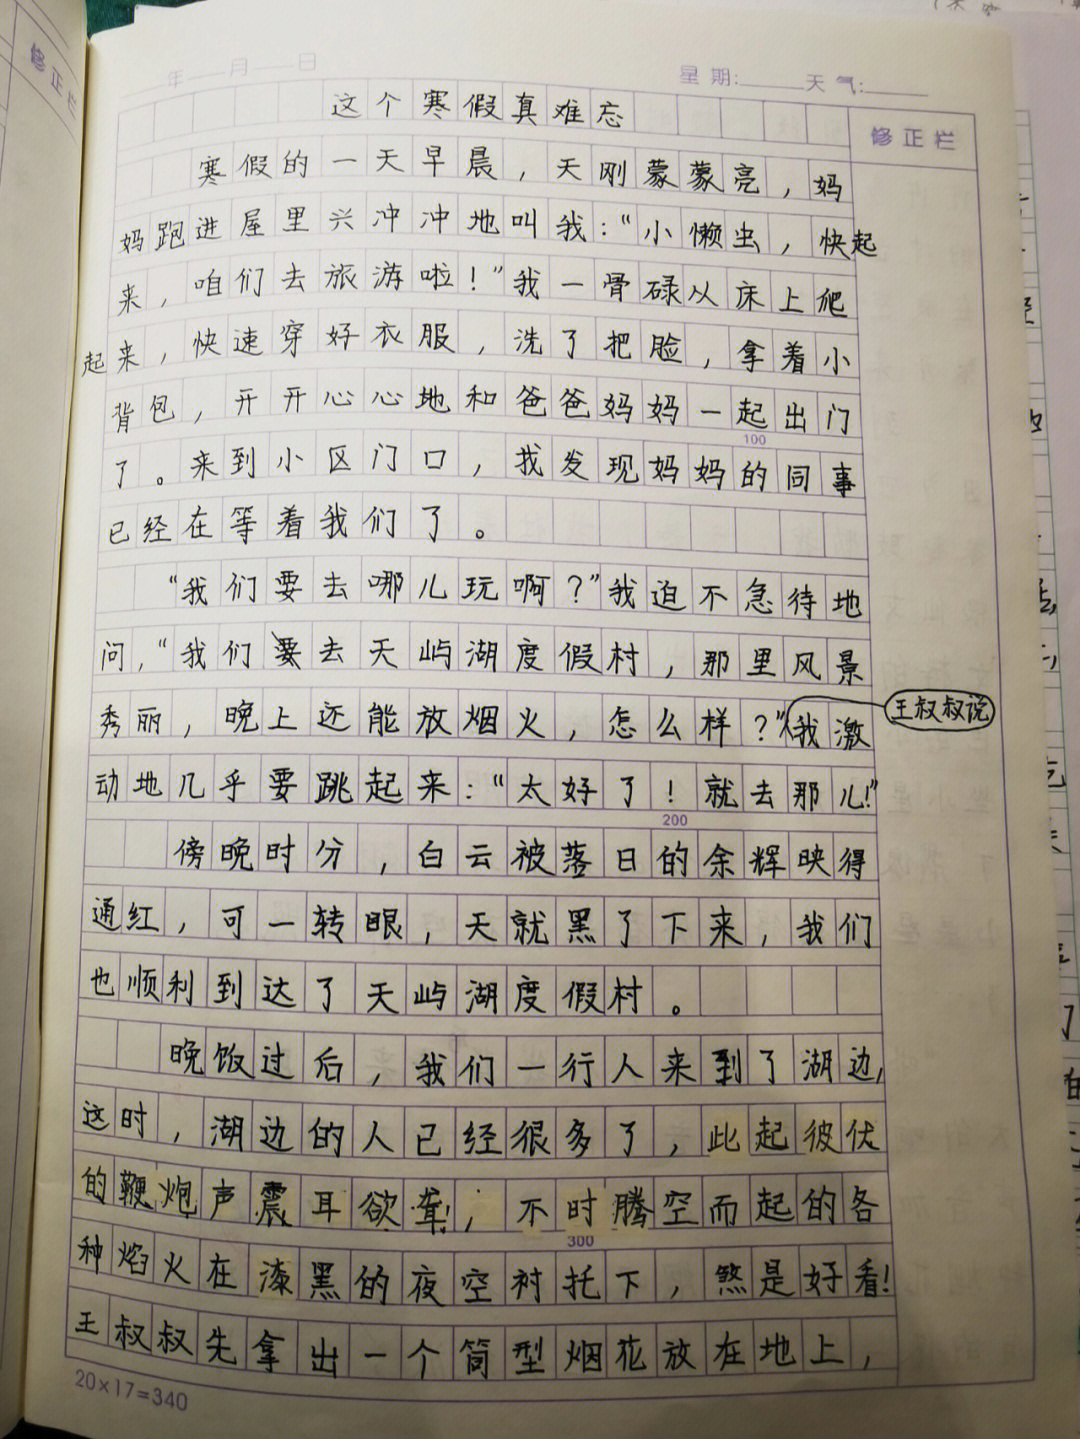 年 月 日 星期: 天气:
修正栏
修正栏
这个寒假真难忘
寒假的一天早晨，天刚蒙蒙亮，妈
妈跑进屋里兴冲冲地叫我：“小懒虫，快起
来，咱们去旅游啦！”我一骨碌从床上爬
起来，快速穿好衣服，洗了把脸，拿着小
背包，开开心心地和爸爸妈妈一起出门
100
了。来到小区门口，我发现妈妈的同事
已经在等着我们了。
“我们要去哪儿玩啊？”我迫不急待地
问，“我们要去天屿湖度假村，那里风景
秀丽，晚上还能放烟火，怎么样？”我激
王叔叔说
动地几乎要跳起来：“太好了！就去那儿！”
200
傍晚时分，白云被落日的余辉映得
通红，可一转眼，天就黑了下来，我们
也顺利到达了天屿湖度假村。
晚饭过后，我们一行人来到了湖边，
这时，湖边的人已经很多了，此起彼伏
的鞭炮声震耳欲聋，不时腾空而起的各
300
种焰火在漆黑的夜空衬托下，煞是好看！
王叔叔先拿出一个筒型烟花放在地上，
20×17=340